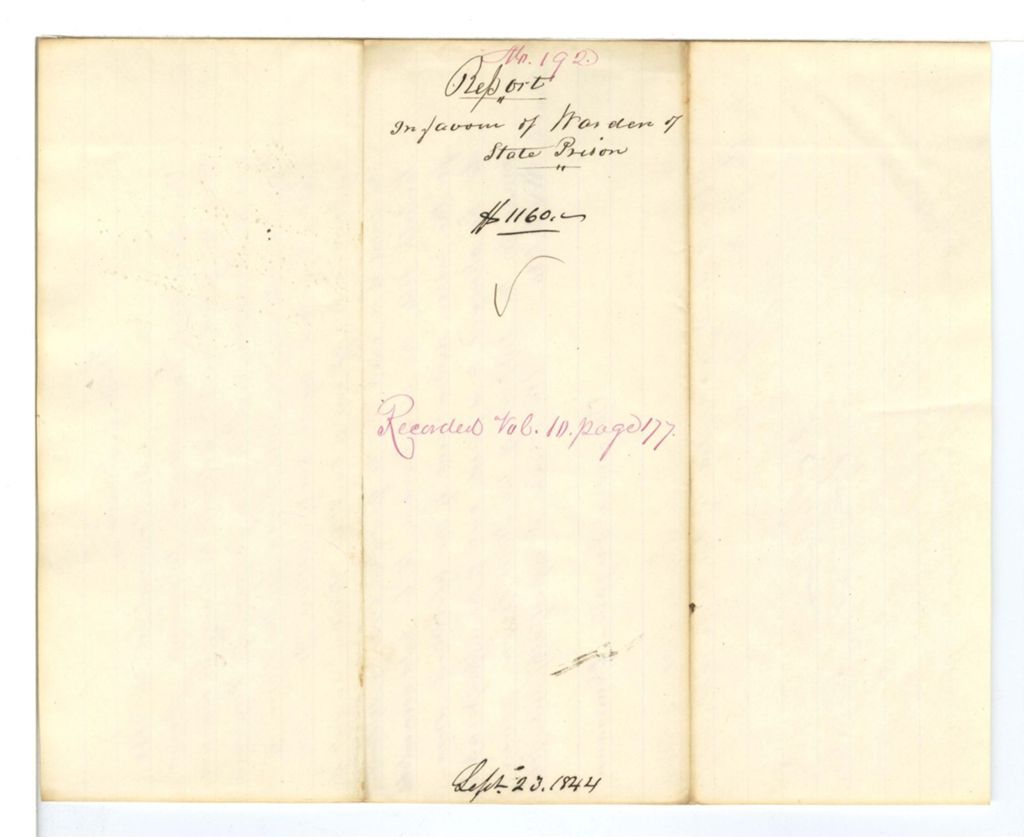 No. 192
Report
In favour of Warden of
State Prison
$1160.
Recorded Vol. 10. page 177.
Sept. 23. 1844